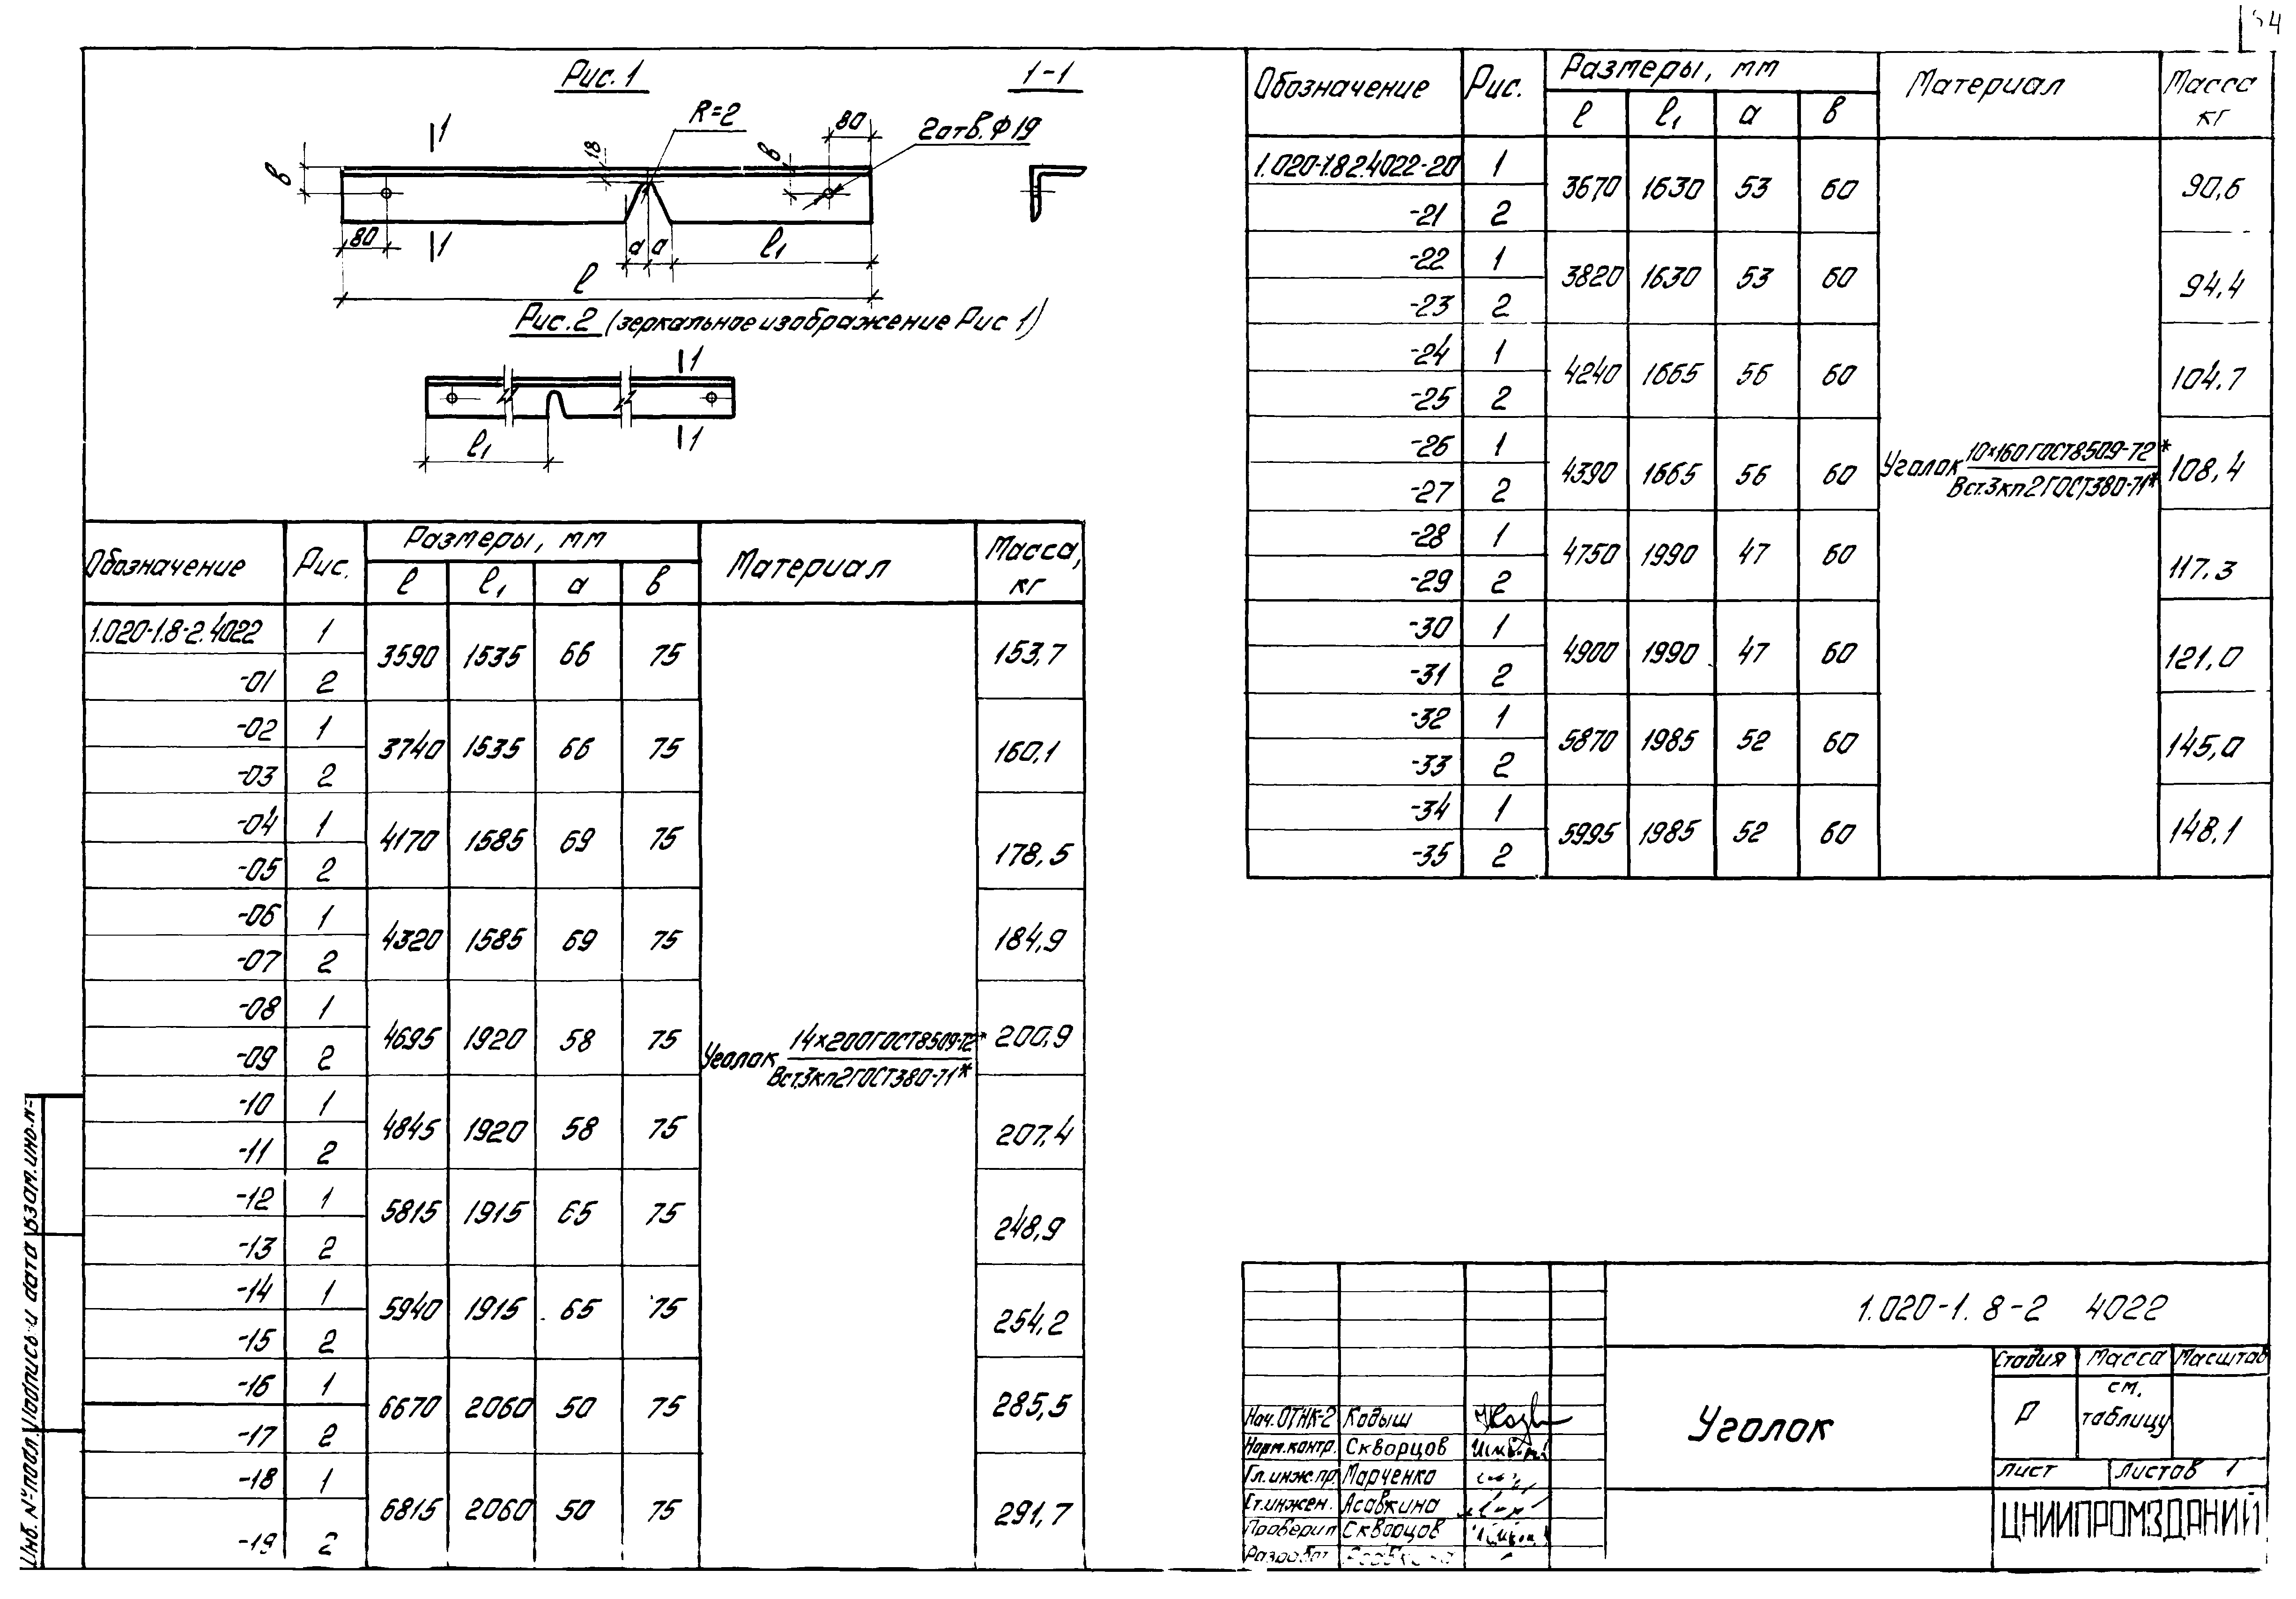 34
Рис. 1
1-1
1
R=2
2отв. Ф19
80
18
в
в
80
1
а
а
l₁
l
Рис. 2 (зеркальное изображение Рис 1)
1
1
l₁
Обозначение Рис. Размеры, мм Материал Масса, кг
l l₁ а в
1.020-1.8-2.4022 1 3590 1535 66 75 153,7
-01 2
-02 1 3740 1535 66 75 160,1
-03 2
-04 1 4170 1585 69 75 178,5
-05 2
-06 1 4320 1585 69 75 184,9
-07 2
-08 1 4695 1920 58 75 200,9
-09 2
Уголок 14×200 ГОСТ 8509-72*
Вст.3кп2 ГОСТ 380-71*
-10 1 4845 1920 58 75 207,4
-11 2
-12 1 5815 1915 65 75 248,9
-13 2
-14 1 5940 1915 65 75 254,2
-15 2
-16 1 6670 2060 50 75 285,5
-17 2
-18 1 6815 2060 50 75 291,7
-19 2
Обозначение Рис. Размеры, мм Материал Масса кг
l l₁ а в
1.020-1.8 2.4022-20 1 3670 1630 53 60 90,6
-21 2
-22 1 3820 1630 53 60 94,4
-23 2
-24 1 4240 1665 56 60 104,7
-25 2
-26 1 4390 1665 56 60 108,4
-27 2
Уголок 10×160 ГОСТ 8509-72*
Вст.3кп2 ГОСТ 380-71*
-28 1 4750 1990 47 60 117,3
-29 2
-30 1 4900 1990 47 60 121,0
-31 2
-32 1 5870 1985 52 60 145,0
-33 2
-34 1 5995 1985 52 60 148,1
-35 2
1.020-1. 8-2 4022
Уголок
Стадия Масса Масштаб
Р см. таблицу
Лист Листов 1
ЦНИИПРОМЗДАНИЙ
Нач. ОТНК-2 Кодыш
Норм.контр. Скворцов
Гл.инж.пр. Марченко
Ст.инжен. Асавкина
Проверил Скворцов
Разработ
Инв. № подл. Подпись и дата Взам.инв.№